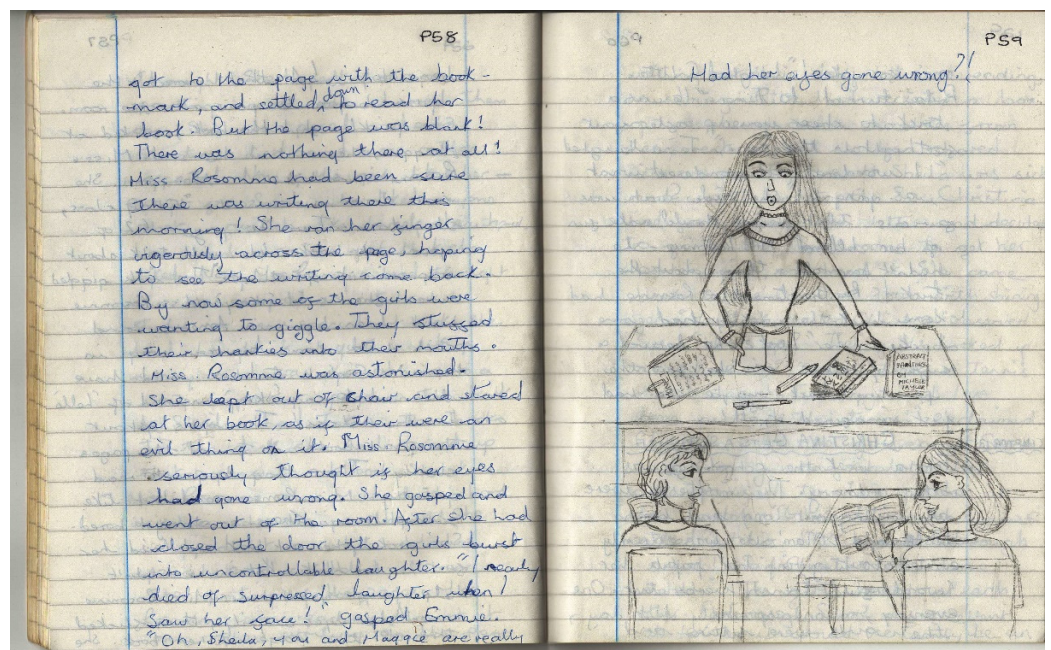 P58
got to the page with the book-
mark, and settled, down to read her
book. But the page was blank!
There was nothing there at all!
Miss. Rosomme had been sure
there was writing there this
morning! She ran her finger
vigorously across the page, hoping
to see the writing come back.
By now some of the girls were
wanting to giggle. They stuffed
their hankies into their mouths.
Miss. Rosomme was astonished.
She lept out of chair and stared
at her book, as if their were an
evil thing on it. Miss Rosomme
seriously thought if her eyes
had gone wrong. She gasped and
went out of the room. After she had
closed the door the girls burst
into uncontrollable laughter. "I nearly
died of surpressed laughter when I
saw her face!" gasped Emmie.
"Oh, Sheila, you and Maggie are really
P59
Had her eyes gone wrong?!
ABSTRACT
PAINTING
BY
MICHELE
TAYLOR